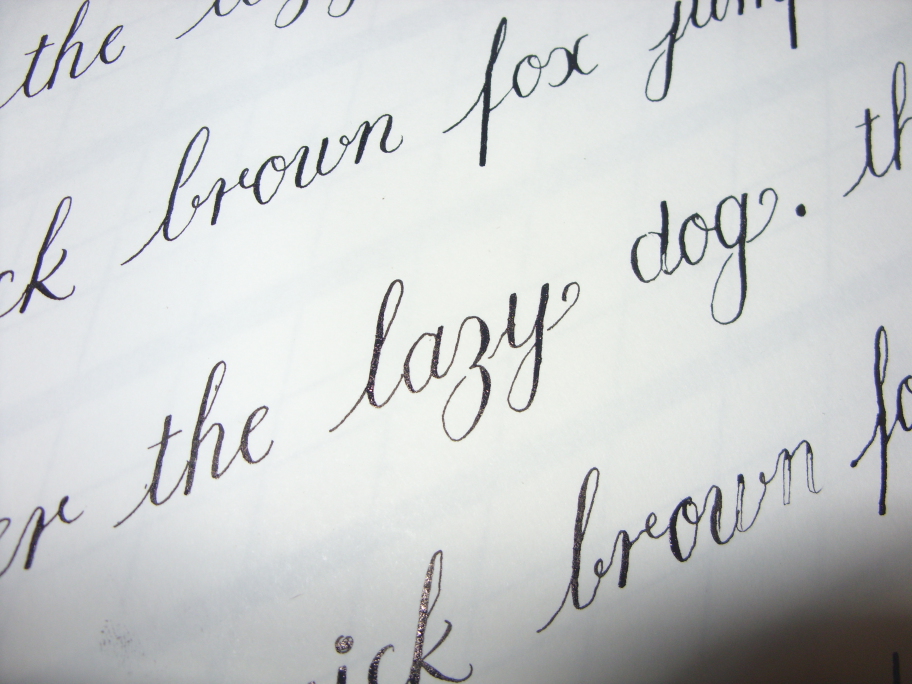 the lazy
ck brown fox jump
er the lazy dog. th
ick brown fo